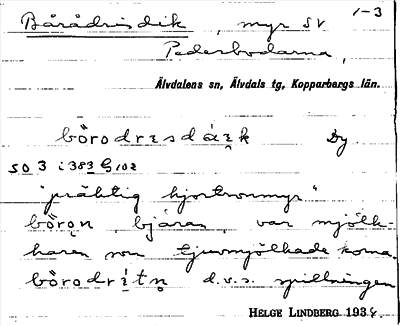 Bårådrisdik, myr SV 1-3
Pederbodarna,
Älvdalens sn, Älvdals tg, Kopparbergs län.
börodrɪsdáɪk Dy
50 3 i 383 G 102
"präktig hjortronmyr"
böron, bjåran, var mjölk-
haren som tjuvmjölkade korna.
börodrítn d.v.s. spillningen
HELGE LINDBERG 193